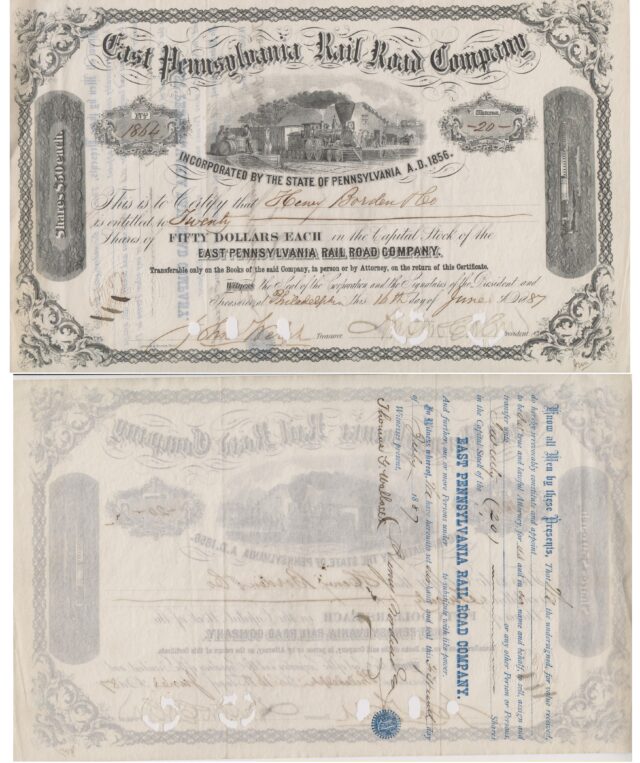 East Pennsylvania Rail Road Company
No. 1864
Shares
-20-
Shares $50 each.
INCORPORATED BY THE STATE OF PENNSYLVANIA A.D. 1856.
This is to Certify that Henry Borden & Co
is entitled to Twenty
Shares of FIFTY DOLLARS EACH in the Capital Stock of the
EAST PENNSYLVANIA RAIL ROAD COMPANY.
Transferable only on the Books of the said Company, in person or by Attorney, on the return of this Certificate.
Witness the Seal of the Corporation and the Signatures of the President and
Treasurer at Philadelphia this 16th day of June A.D. 1887
John Treasurer President
Know all Men by these Presents, That We the undersigned, for value received,
do hereby irrevocably constitute and appoint
to be our true and lawful Attorney, for us and in our name and behalf, to sell, assign and
transfer unto or any other Person or Persons,
Twenty (20) Shares
in the Capital Stock of the
EAST PENNSYLVANIA RAIL ROAD COMPANY.
And further, one or more Persons under to substitute with like power.
In Witness whereof, We have hereunto set our hand and seal this day
of July 1887
Witness present,
Thomas F. Wallace
Henry Borden & Co